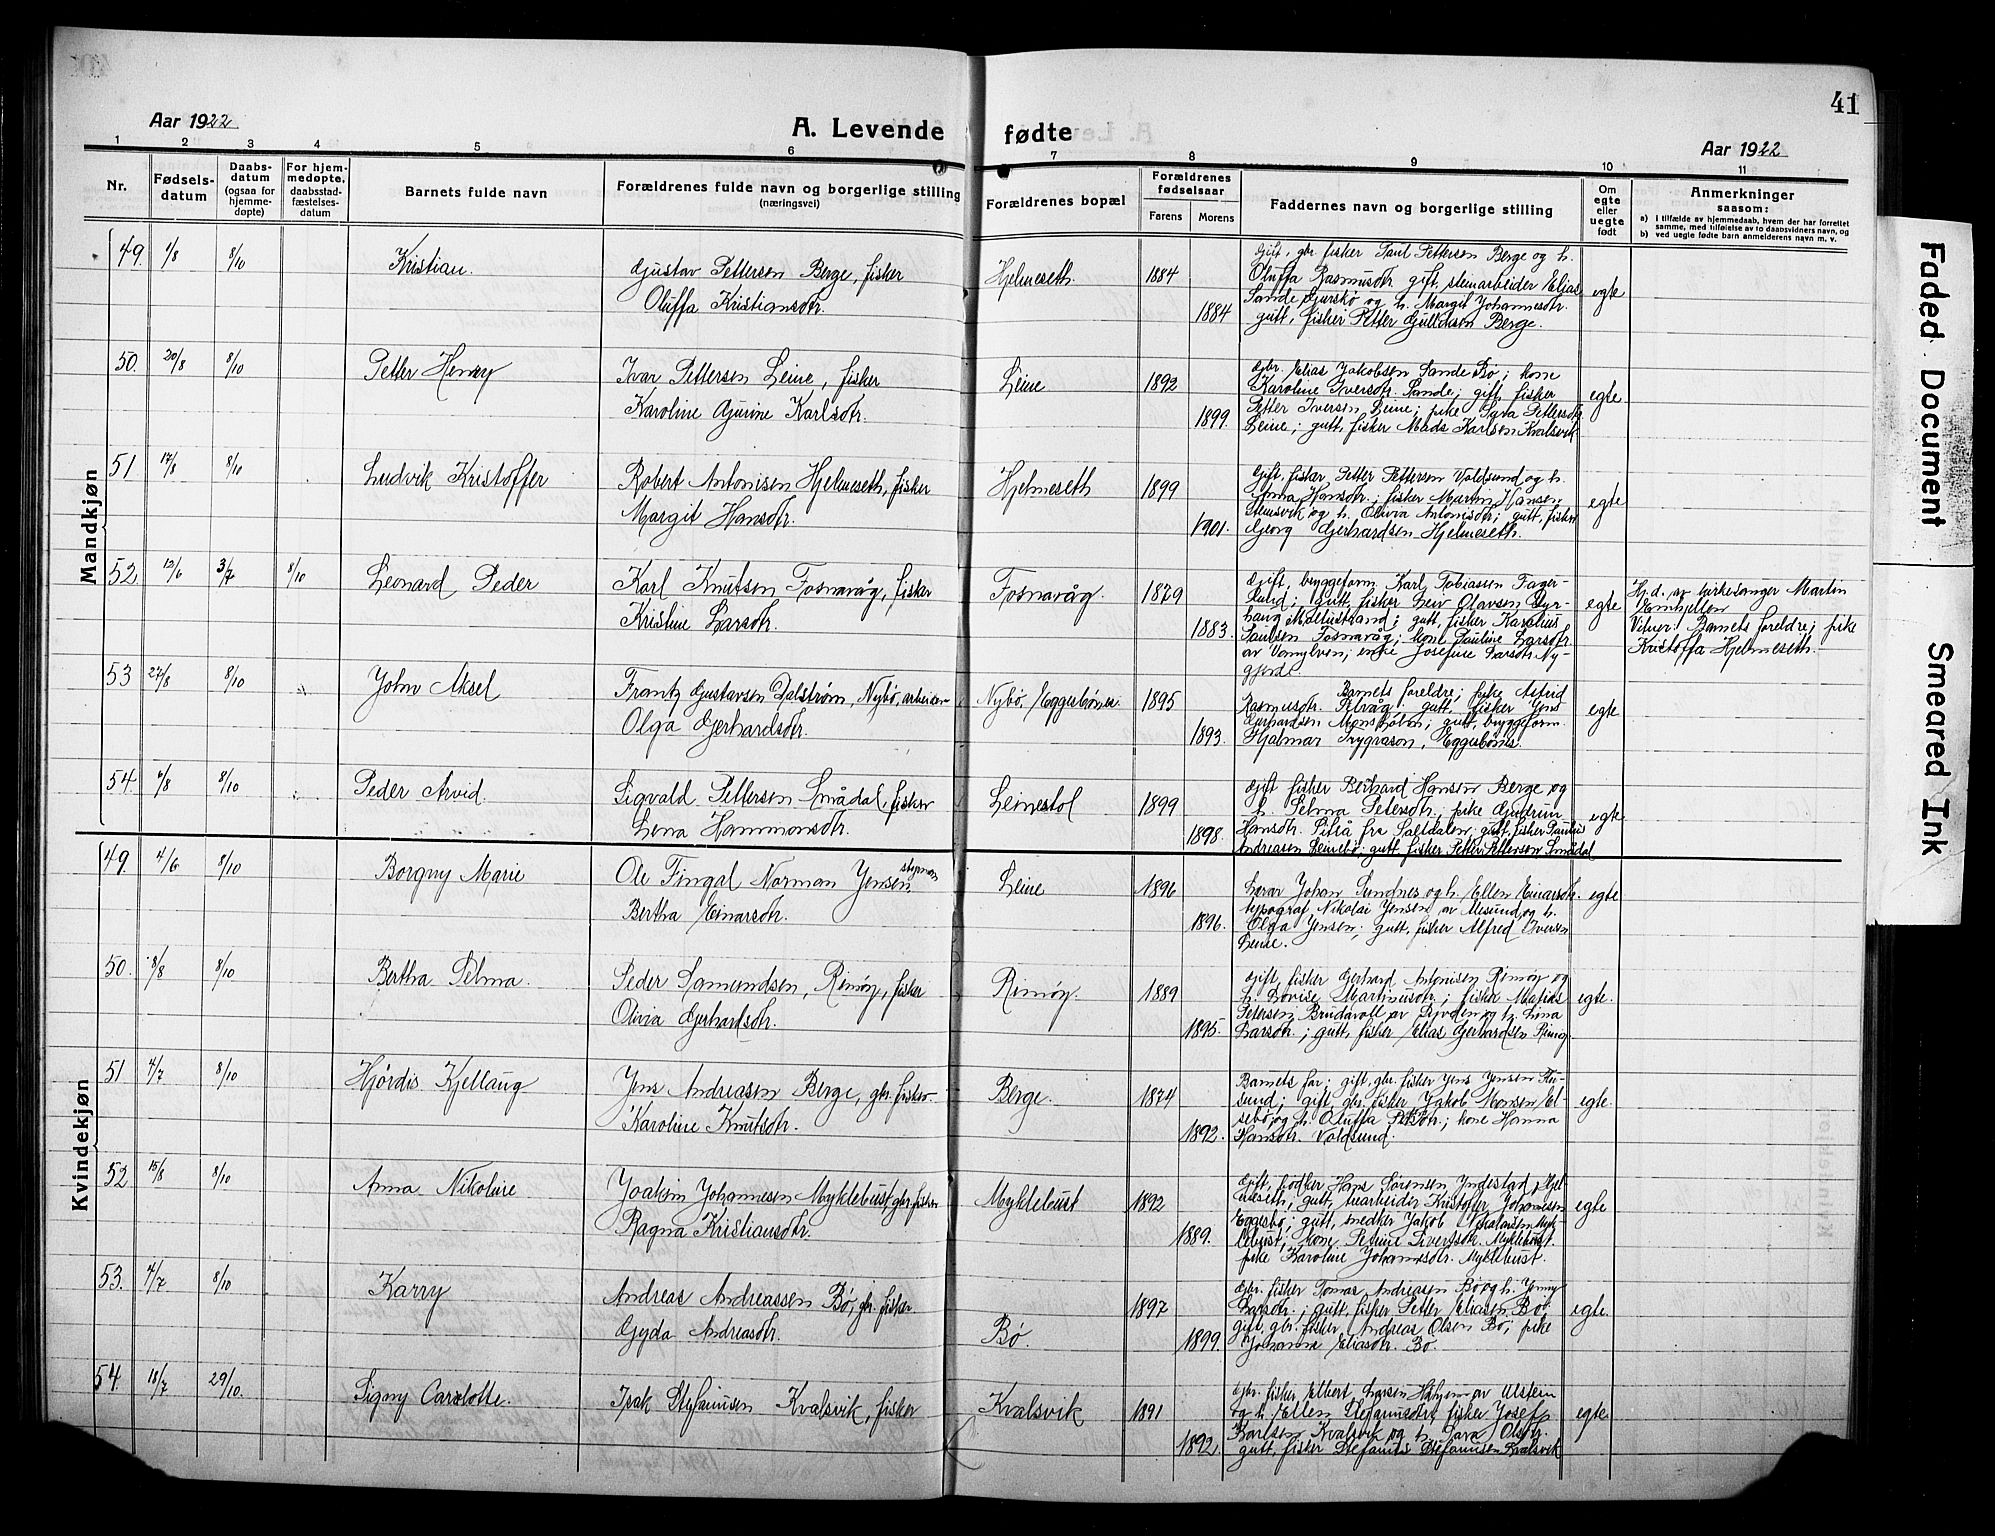 41
Aar 1922
A. Levende fødte
Aar 1922
1 2 3 4 5 6 7 8 9 10 11
Nr.
Fødsels-
datum
Daabs-
datum
(ogsaa for
hjemme-
døpte)
For hjem-
medøpte,
daabsstad-
fæstelses-
datum
Barnets fulde navn
Forældrenes fulde navn og borgerlige stilling
(næringsvei)
Forældrenes bopæl
Forældrenes
fødselsaar
Farens
Morens
Faddernes navn og borgerlige stilling
Om
egte
eller
uegte
født
Anmerkninger
saasom:
a) i tilfælde av hjemmedaab, hvem der har forrettet
samme, med tilføielse av to daabsvidners navn, og
b) ved uegte fødte barn anmelderens navn m. v.
Mandkjøn
49. 1/8 8/10 Kristian. Gustav Pettersen Berge, fisker Hjelmeseth 1884 egte
Oluffa Kristiansdtr. 1884
Gift, gbr. fisker Paul Pettersen Berge og h.
Oluffa Rasmusdtr. gift, stenarbeider Elias
Sande Gurskø og h. Margit Johannesdtr.
gutt, fisker Petter Berge.
50. 20/8 8/10 Petter Henry Ivar Pettersen Leine, fisker Leine 1892 egte.
Karoline Gurine Karlsdtr. 1899.
Gbr. Elias Jakobsen Sande Bø; kone
Karoline Iversdtr. Sande; gift, fisker
Petter Iversen Leine; pike Pettersdtr.
Leine; gutt, fisker Mads Karlsen Kvalsvik
51 17/8 8/10 Ludvik Kristoffer Robert Antonisen Hjelmeseth, fisker Hjelmeseth 1899 egte
Margit Hansdtr. 1901.
Gift, fisker, Petter Pettersen Voldsund og h.
Anna Hansdtr.; fisker Martin Hansen
Stemsvik og h. Olivia Antonisdtr; gutt, fisker
Georg Gerhardsen Hjelmeseth.
52 12/6 3/7 8/10 Leonard Peder Karl Knutsen Fosnavåg, fisker Fosnavåg. 1879 egte
Kristine Larsdtr. 1883.
Gift, bryggeform. Karl Tobiassen Fager-
lund; gutt, fisker Leiv Olavsen Dyr-
haug Moltustrand; gutt, fisker Karolius
Paulsen Fosnavåg; kone Pauline Larsdtr.
av Vannylven; enke Josefine Larsdtr. Ny-
gjerde.
Hj.d. av kirkesanger Martin
Vitner: Barnets foreldre; pike
Kristoffa Hjelmeseth.
53 27/8 8/10 John Aksel Frantz Gustavsen Dalstrøm, Nybø, arbeider Nybø, Eggesbønes. 1895 egte
Olga Gerhardsdtr. 1893.
Barnets foreldre; pike Astrid
Rasmusdtr. gutt, fisker Jens
Gerhardsen Monsholm; gutt, bryggeform.
Hjalmar Trygvason, Eggesbønes.
54. 4/8 8/10 Peder Arvid. Sigvald Pettersen Smådal, fisker Leinestol 1899 egte
Lena Hammonsdtr. 1898.
Gift fisker Berhard Hansen Berge og
h. Selma Petersdtr.; pike Gudrun
Hansdtr. fra Saltdalen; gutt, fisker Paulus
Andreasen Leinebø; gutt, fisker Petter Pettersen Smådal
Kvindekjøn
49. 4/6 8/10 Borgny Marie Ole Fingal Norman Jensen styrman Leine 1896 egte
Bertha Einarsdtr. 1896.
Lærar Johan Sundnes og h. Ellen Einarsdtr.
typograf Nikolai Jensen av Ålesund og h.
Olga Jensen; gutt, fisker Alfred Iversen
Leine.
50. 8/8 8/10 Bertha Selma. Peder Samundsen, Remøy, fisker Remøy. 1889 egte.
Olivia Gerhardsdtr. 1895.
Gift, fisker Gerhard Antonisen Remøy og
h. Lovise Martinusdtr.; fisker Matias
Petersen Brudavoll av Syvden og h. Lina
Larsdtr.; gutt, fisker Elias Gerhardsen Remøy
51 4/7 8/10 Hjørdis Kjellaug Jens Andreasen Berge, gbr. fisker. Berge. 1874 egte.
Karoline Knutsdtr. 1892.
Barnets far; gift, gbr. fisker Jens Jensen Flu-
sund; gift, gbr. fisker Jakob Monsen El-
sebø og h. Oluffa Pettersdtr.; kone Hanna
Hansdtr. Voldsund.
52 15/8 8/10 Anna Nikoline Joakim Johannesen Myklebust, gbr. fisker Myklebust 1892 egte
Ragna Kristiansdtr. 1889.
Gift, bødker Hans Sørensen Yndestad, Hjel-
meseth; gutt, trearbeider Kristofer Johannesen
Eggesbø; gutt, snedker Jakob Nikolaisen Myk-
lebust; kone Petrine Sivertsdtr. Myklebust.
pike Karoline Johannesdtr. Myklebust.
53. 4/7 8/10 Karry Andreas Andreassen Bø, gbr. fisker Bø. 1897 egte.
Gyda Andreasdtr. 1899.
Gbr. fisker Tomas Andreasen Bø og h. Jenny
Larsdtr.; gutt, fisker Petter Eliasen Bø;
gift, gbr. fisker, Andreas Olsen Bø; pike
Johanna Eliasdtr. Bø.
54. 18/7 29/10. Signy Carlotte. Isak Stefanusen Kvalsvik, fisker Kvalsvik 1891 egte
1892.
Gbr. fisker, Elbert Larsen av Ulstein
og h. Ellen Stefanusdtr, fisker Josef
Karlsen Kvalsvik og h. Sara Olsdtr.
gutt, fisker Stefanus Stefanusen Kvalsvik
Faded Document
Smeared Ink